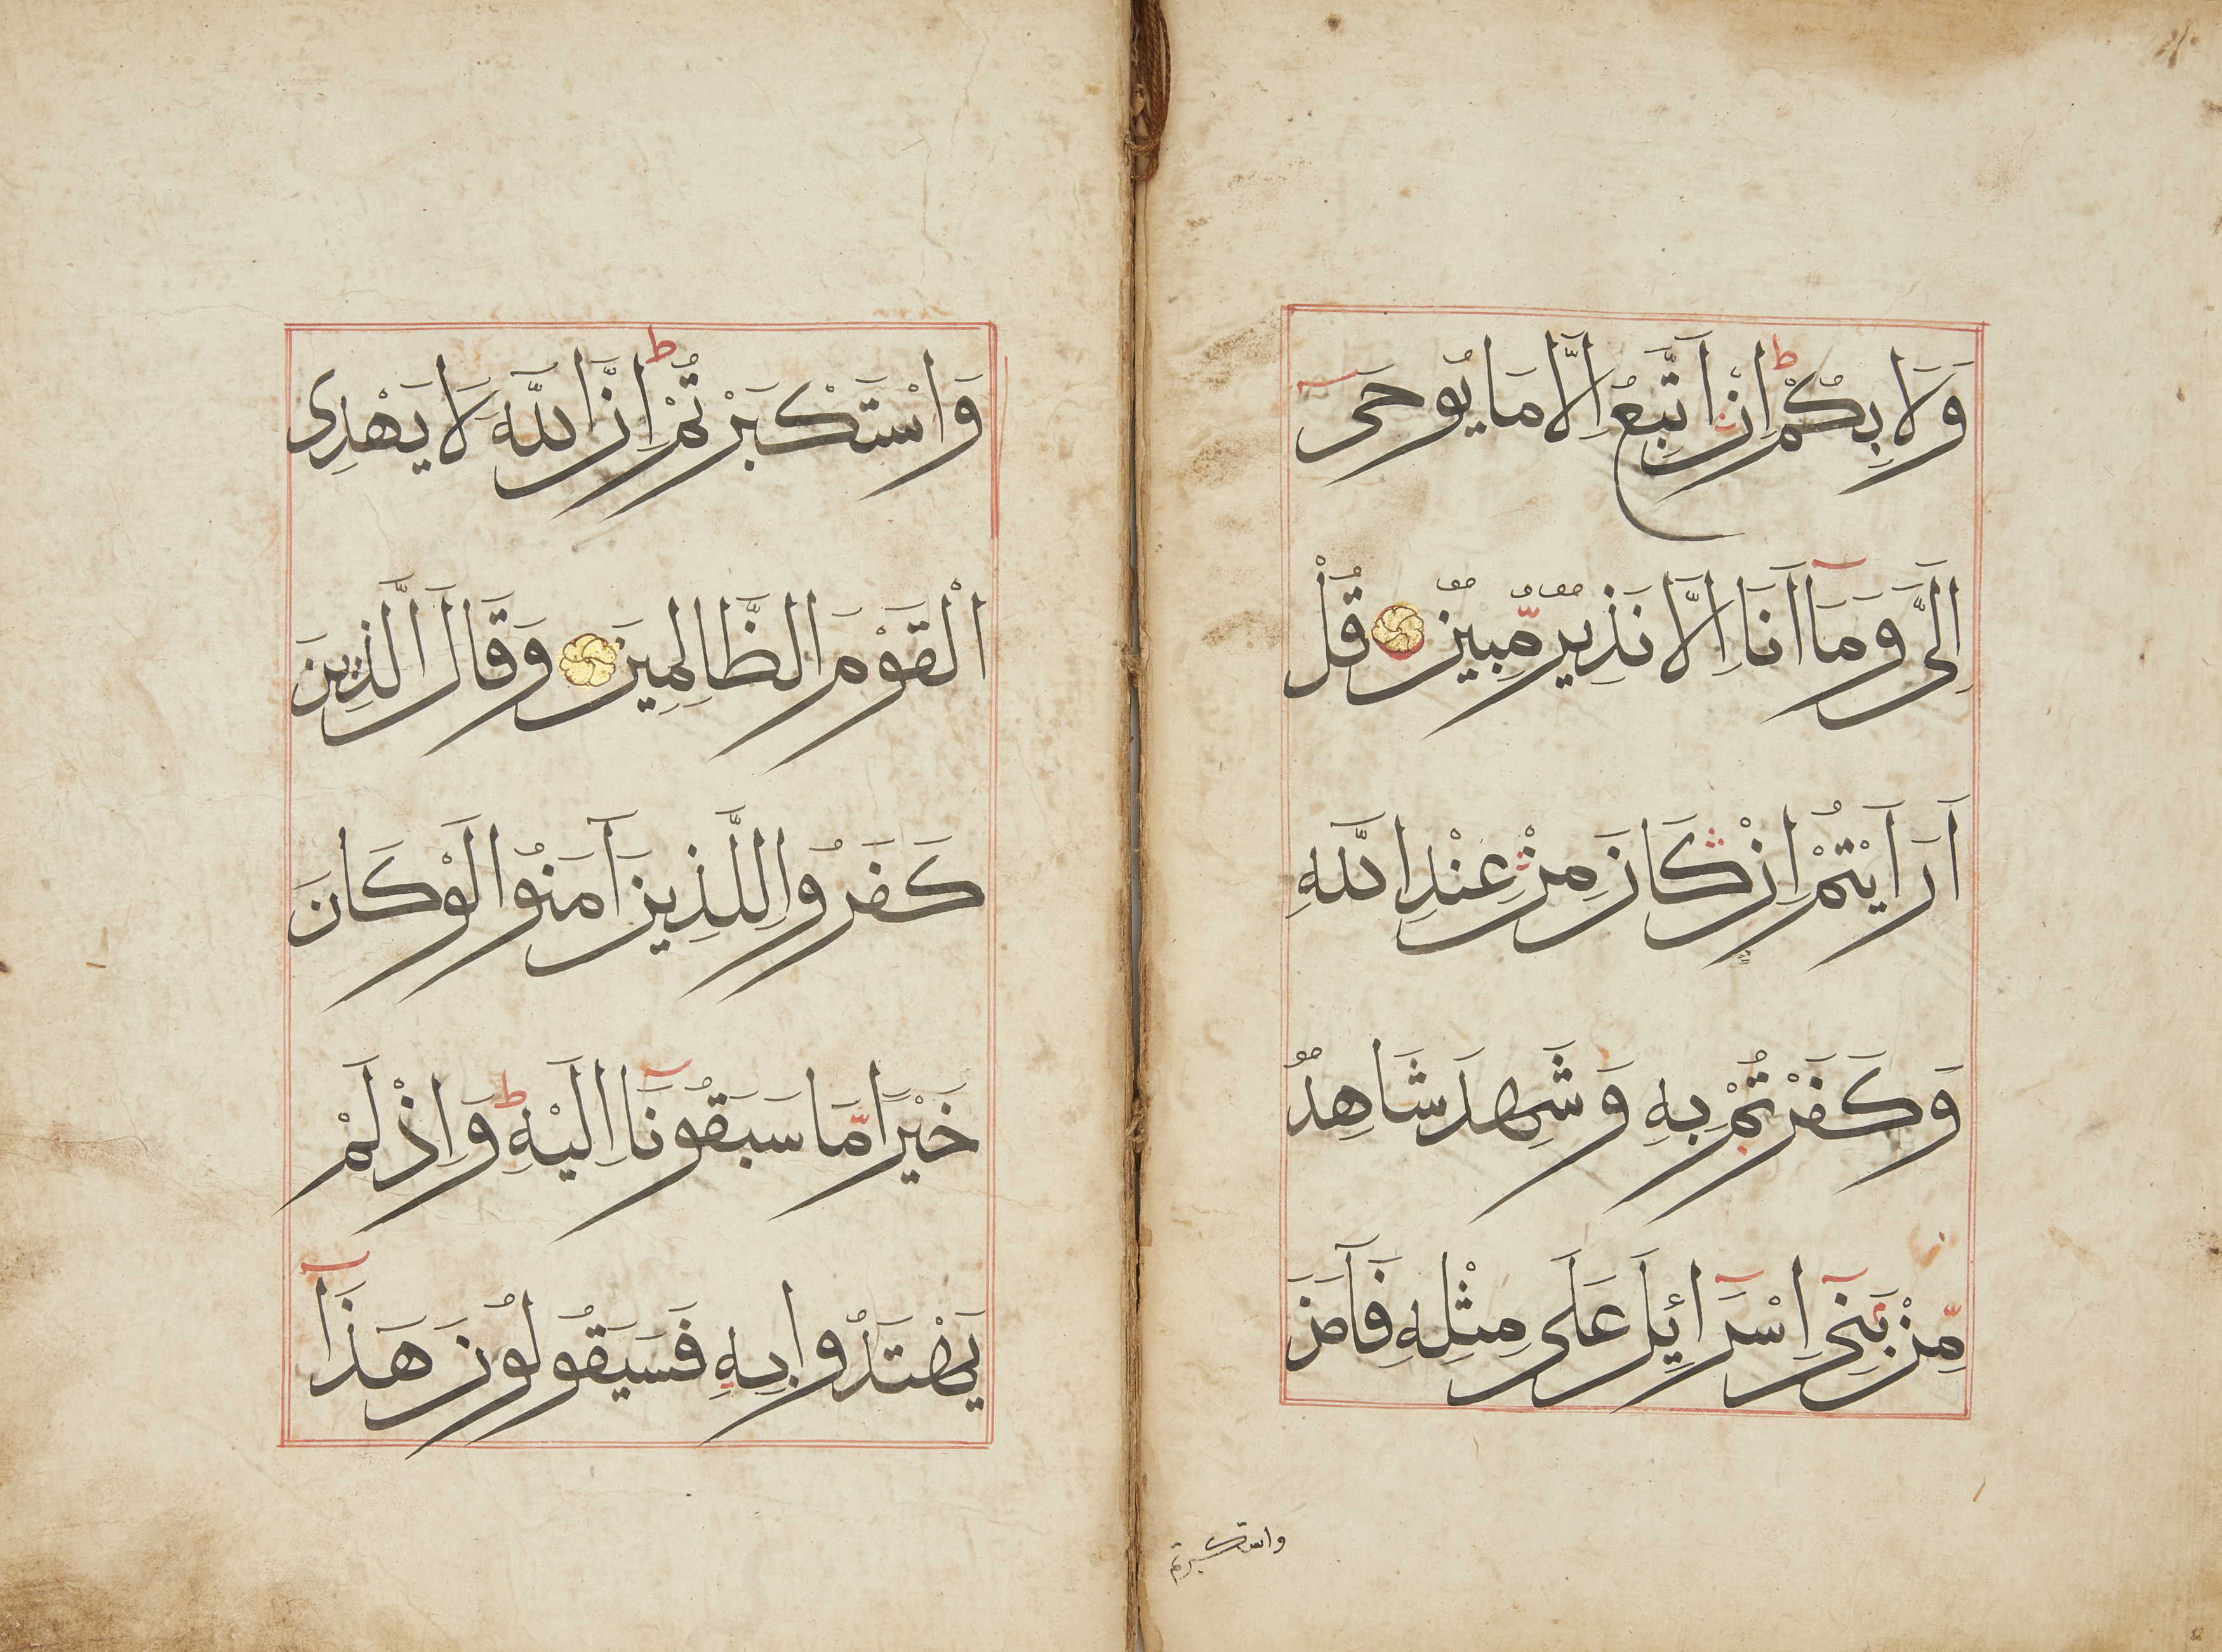 وَلَا بِكُمْ اِنْ اَتَّبِعُ اِلَّا مَا يُوحَى
اِلَىَّ وَمَا اَنَا اِلَّا نَذِيرٌ مُّبِينٌ قُلْ
اَرَاَيْتُمْ اِنْ كَانَ مِنْ عِنْدِ اللَّهِ
وَكَفَرْتُمْ بِهِ وَشَهِدَ شَاهِدٌ
مِّنْ بَنِى اِسْرَائِلَ عَلَى مِثْلِهِ فَآمَنَ
واستكبرتم
وَاسْتَكْبَرْتُمْ اِنَّ اللَّهَ لَا يَهْدِى
الْقَوْمَ الظَّالِمِينَ وَقَالَ الَّذِينَ
كَفَرُوا لِلَّذِينَ آمَنُوا لَوْ كَانَ
خَيْرًا مَّا سَبَقُونَا اِلَيْهِ وَاِذْ لَمْ
يَهْتَدُوا بِهِ فَسَيَقُولُونَ هَذَا